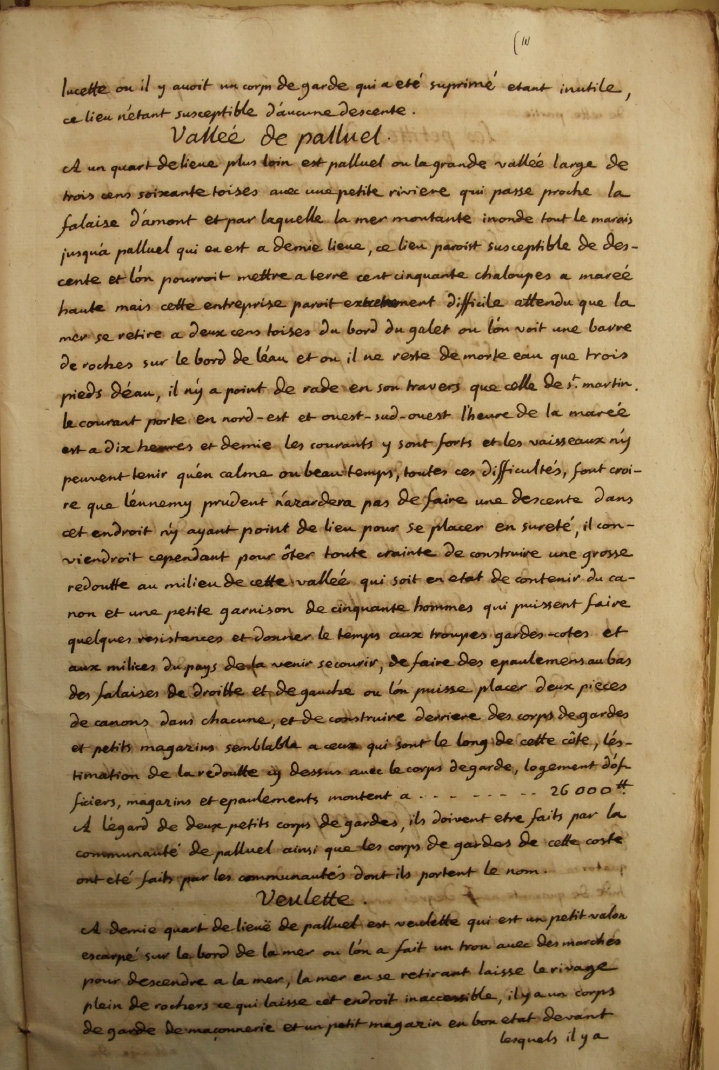 lucette ou il y avoit un corps de garde qui a eté suprimé etant inutile,
ce lieu n'étant susceptible d'aucune descente.
Valleé de palluel.
A un quart de lieue plus loin est palluel ou la grande valleé large de
trois cens soixante toises avec une petite riviere qui passe proche la
falaise d'amont et par laquelle la mer montante inonde tout le marais
jusqu'a palluel qui en est a demie lieue, ce lieu paroist susceptible de des-
cente et l'on pourroit mettre a terre cent cinquante chaloupes a mareé
haute mais cette entreprise paroit extremement difficile attendu que la
mer se retire a deux cens toises du bord du galet ou l'on voit une barre
de roches sur le bord de l'eau et ou il ne reste de morte eau que trois
pieds d'éau, il n'y a point de rade en son travers que celle de st. martin.
le courant porte en nord-est et ouest-sud-ouest l'heure de la mareé
est a dix heures et demie les courants y sont forts et les vaisseaux n'y
peuvent tenir qu'en calme ou beau temps, toutes ces difficultés, font croi-
re que l'ennemy prudent n'azardera pas de faire une descente dans
cet endroit n'y ayant point de lieu pour se placer en sureté, il con-
viendroit cependant pour ôter toute crainte de construire une grosse
redoutte au milieu de cette valleé qui soit en etat de contenir du ca-
non et une petite garnison de cinquante hommes qui puissent faire
quelques resistences et donner le temps aux troupes gardes-cotes et
aux milices du pays de la venir secourir, de faire des epaulemens au bas
des falaises de droitte et de gauche ou l'on puisse placer deux pieces
de canons dans chacune, et de construire derriere des corps de gardes
et petits magazins semblable a ceux qui sont le long de cette côte, l'és-
timation de la redoutte cy dessus avec le corps de garde, logement d'óf-
ficiers, magazins et epaulements montent a . - - - - - - - 26000 tt
A l'égard de deux petits corps de gardes, ils doivent etre faits par la
communauté de palluel ainsi que les corps de gardes de cette coste
ont été faits par les communautés dont ils portent le nom.
Veulette.
A demie quart de lieuë de palluel est veulette qui est un petit valon
escarpé sur le bord de la mer ou l'ón a fait un trou avec des marches
pour descendre a la mer, la mer en se retirant laisse le rivage
plein de rochers ce qui laisse cet endroit inaccessible, il y a un corps
de garde de maçonnerie et un petit magazin en bon etat devant
lesquels il y a